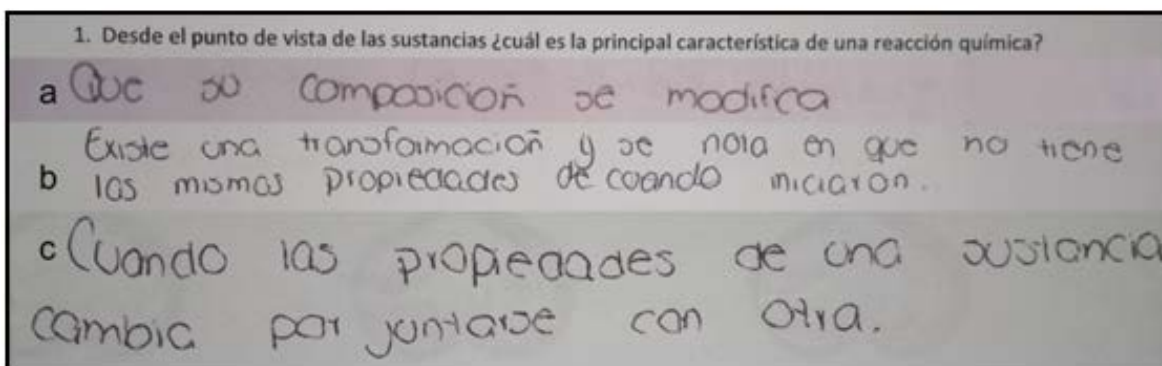 1. Desde el punto de vista de las sustancias ¿cuál es la principal característica de una reacción química?
a Que su composicioñ se modifca
Existe una transformacioñ y se nota en que no tiene
b las mismas propiedades de cuando iniciaron.
c Cuando las propiedades de una sustancia
cambia por juntarse con otra.